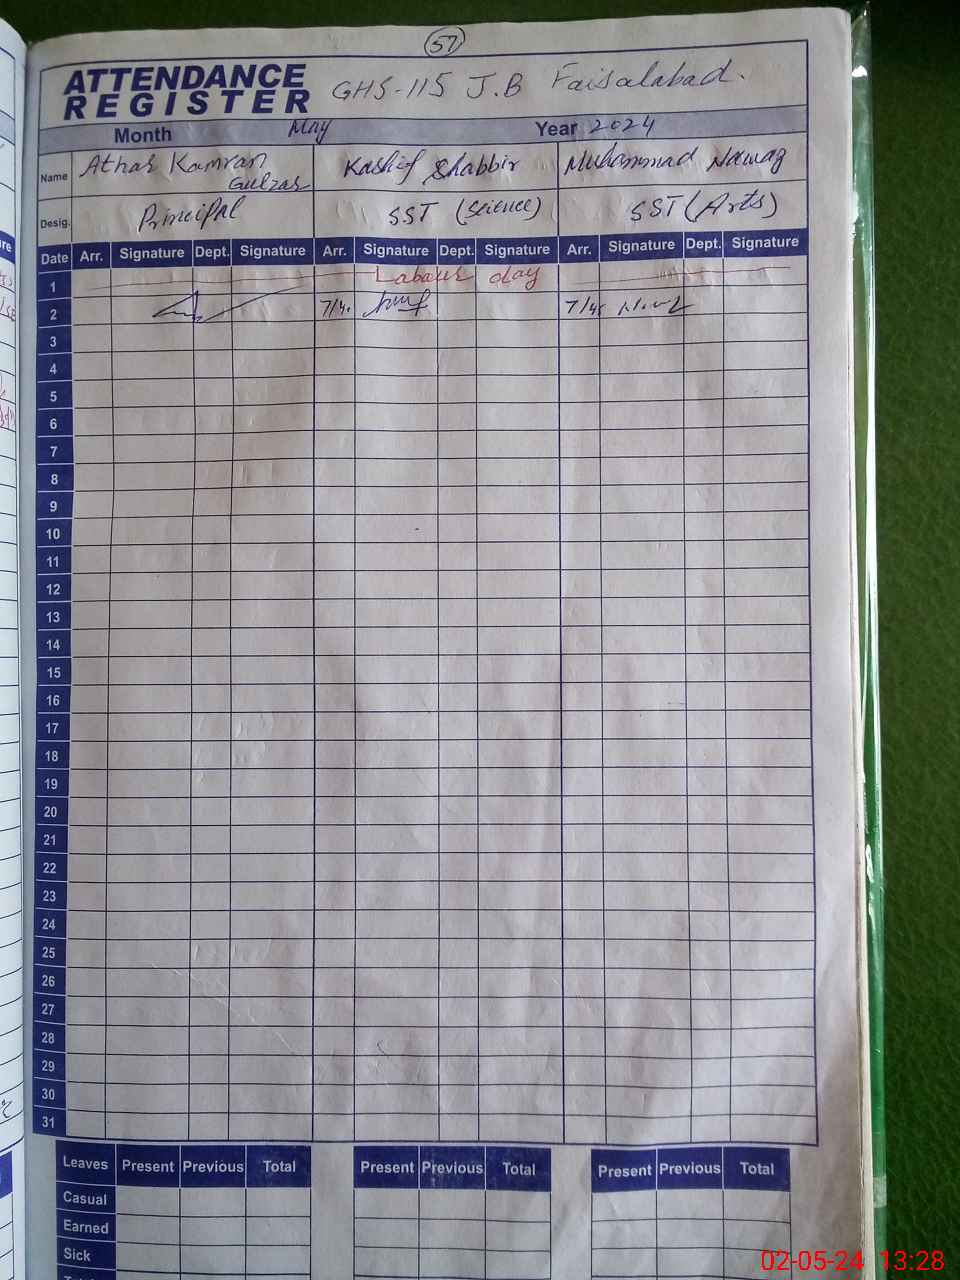 57
ATTENDANCE REGISTER GHS-115 J.B Faisalabad.
Month May Year 2024
Name Athar Kamran Gulzar Kashif Shabbir Muhammad Nawaz
Desig. Principal SST (Science) SST (Arts)
Date Arr. Signature Dept. Signature Arr. Signature Dept. Signature Arr. Signature Dept. Signature
1 Labour day
2 7/45
3
4
5
6
7
8
9
10
11
12
13
14
15
16
17
18
19
20
21
22
23
24
25
26
27
28
29
30
31
Leaves Present Previous Total Present Previous Total Present Previous Total
Casual
Earned
Sick
02-05-24 13:28